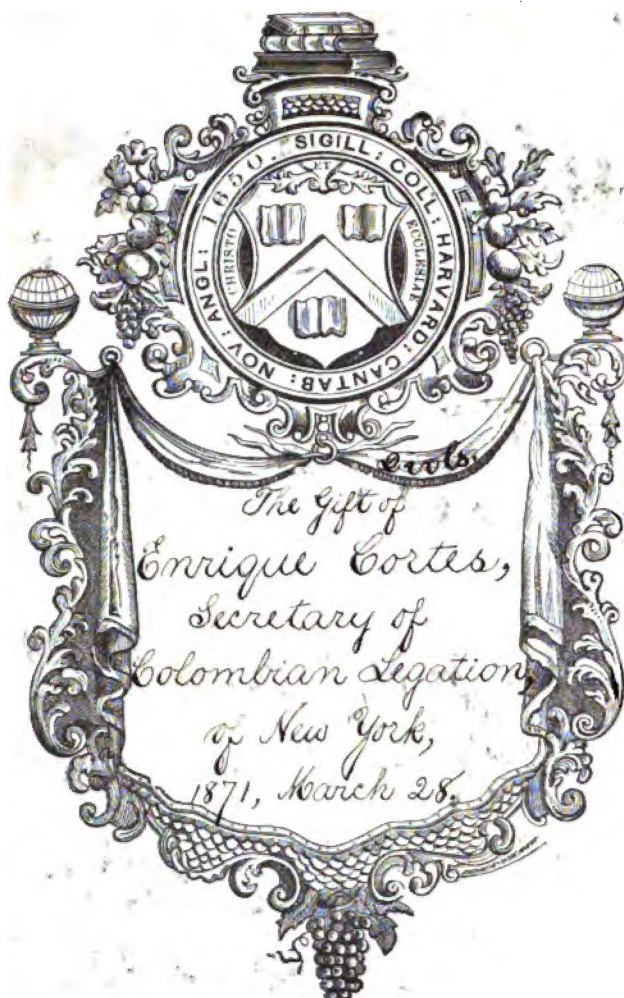 SIGILL: COLL: HARVARD: CANTAB: NOV: ANGL: 1650.
ET
CHRISTO
ECCLESIAE
The Gift of
Enrique Cortes,
Secretary of
Colombian Legation,
of New York,
1871, March 28.